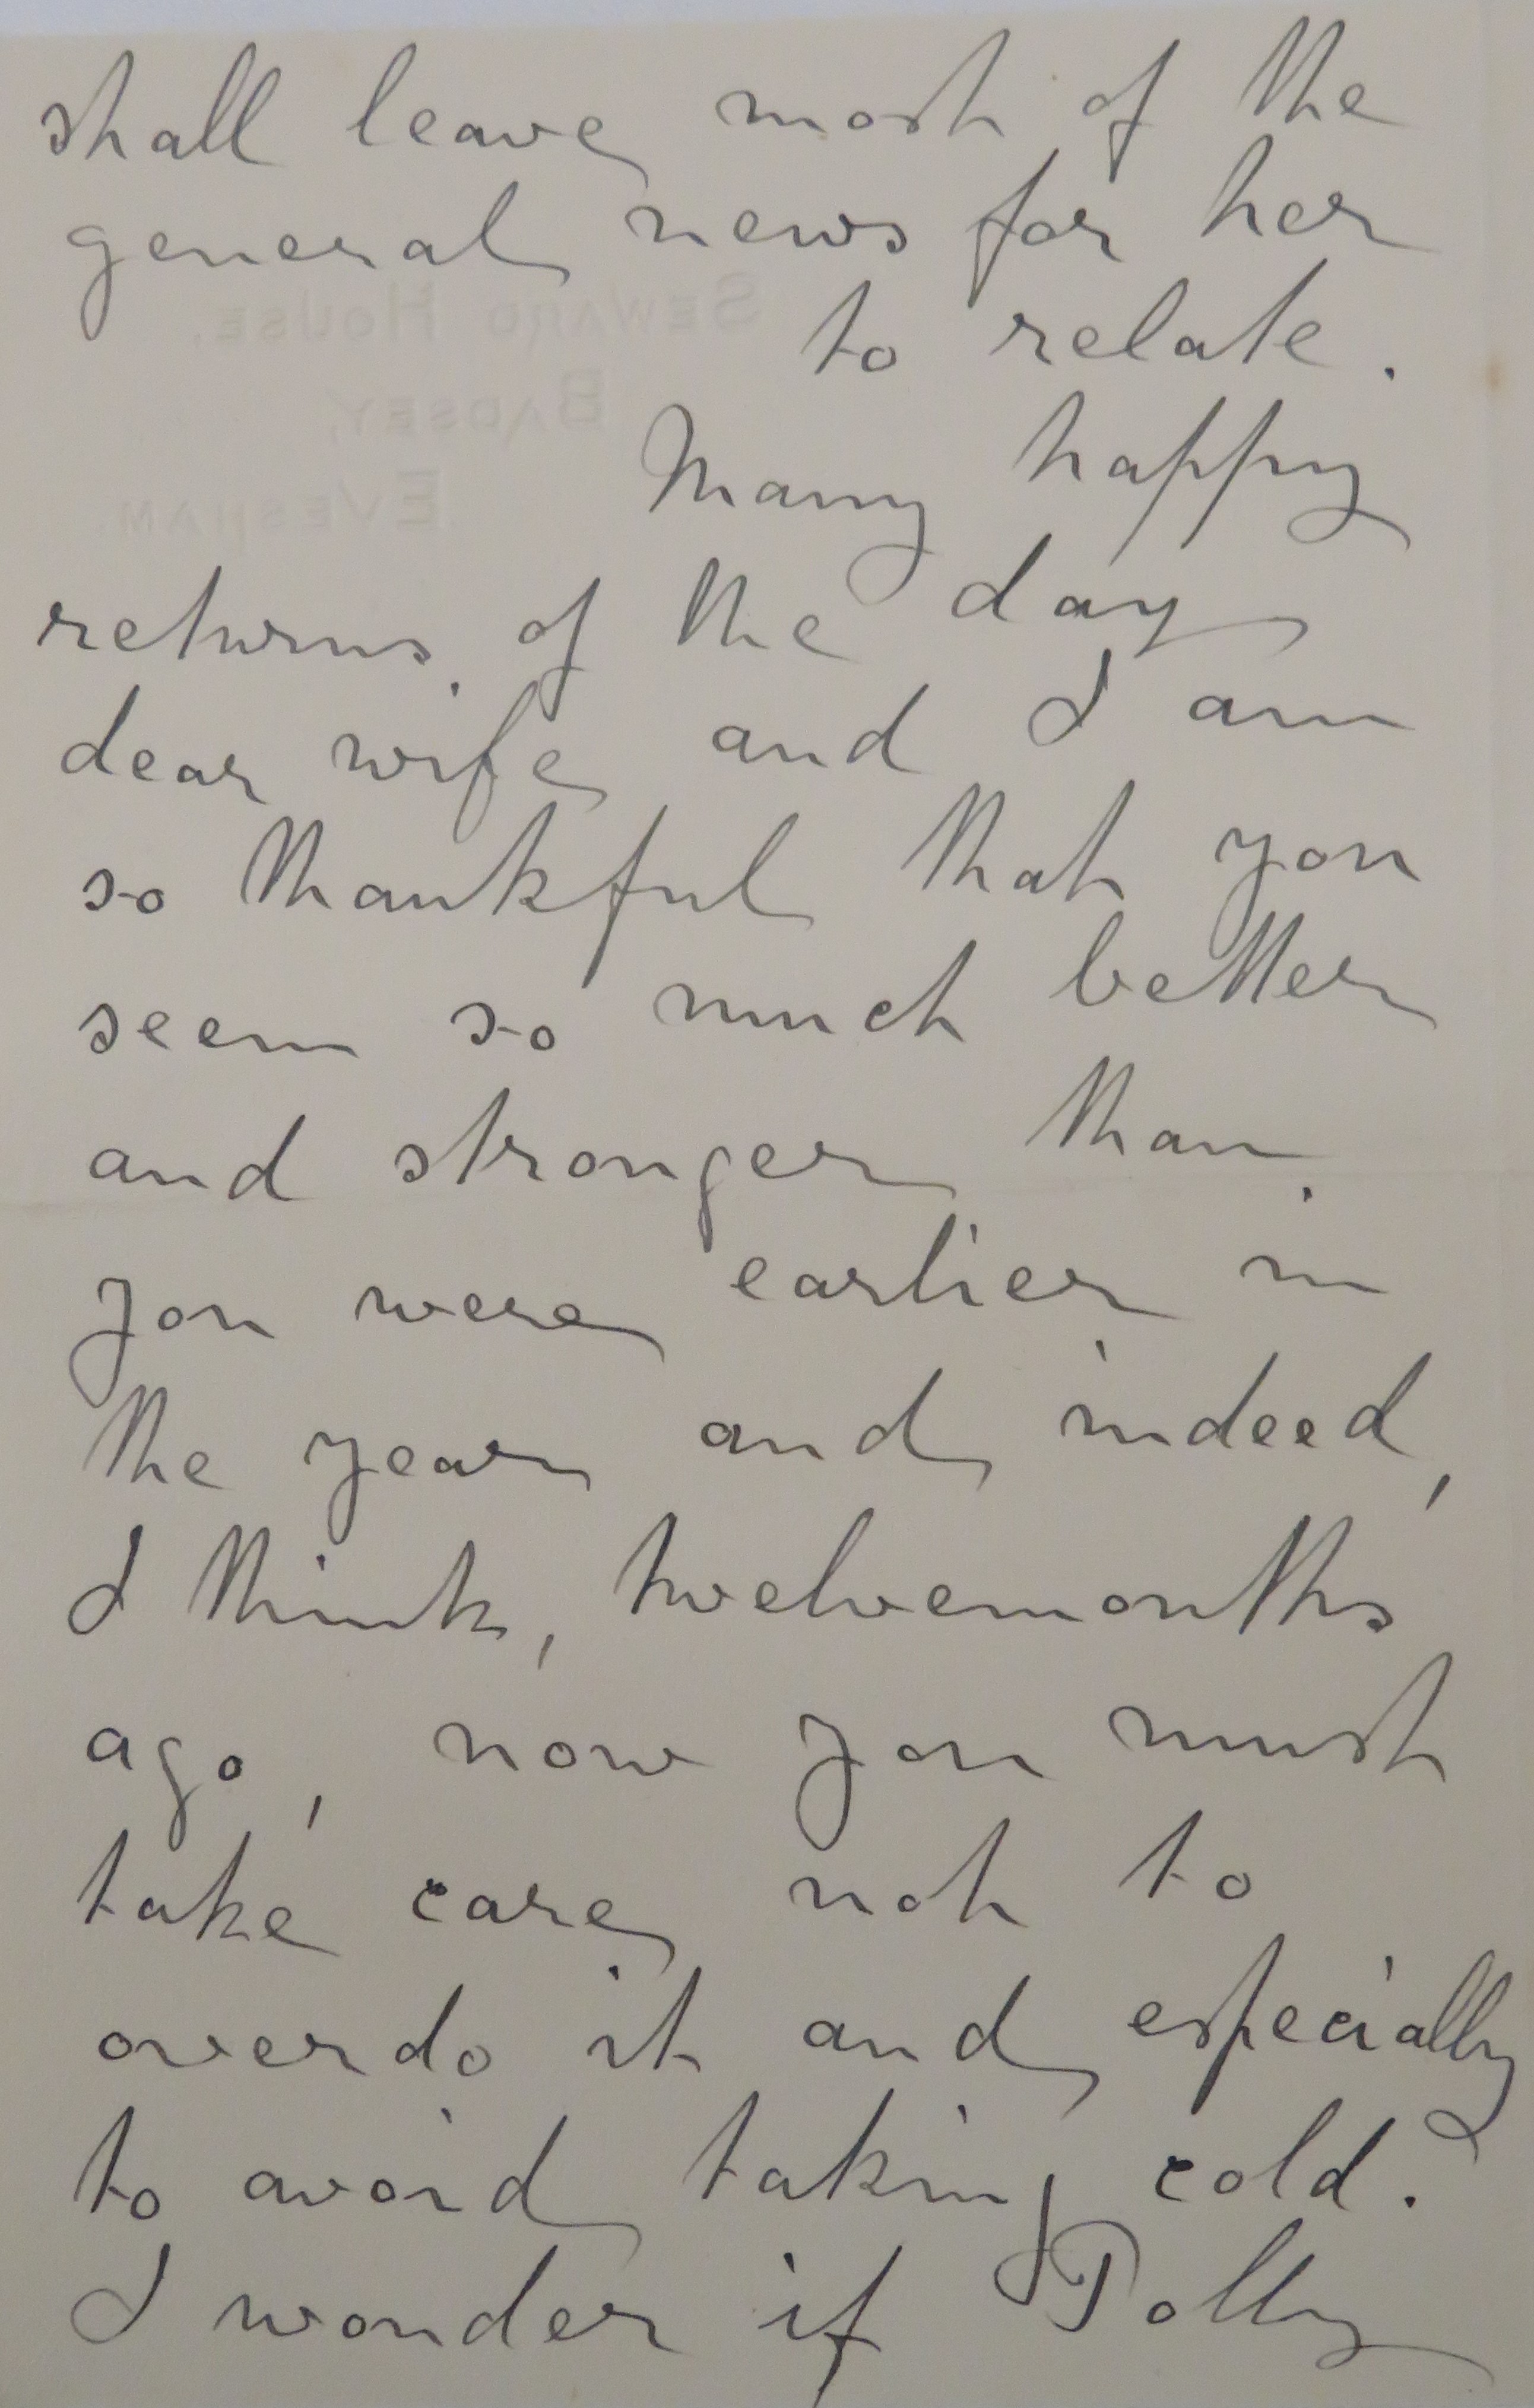 shall leave most of the
general news for her
to relate.
Many happy
returns of the day
dear wife and I am
so thankful that you
seem so much better
and stronger than
you were earlier in
the year and indeed,
I think, twelvemonths
ago, now you must
take care not to
overdo it and especially
to avoid taking cold.
I wonder if Polly
SEWARD HOUSE.
BADSEY,
EVESHAM.